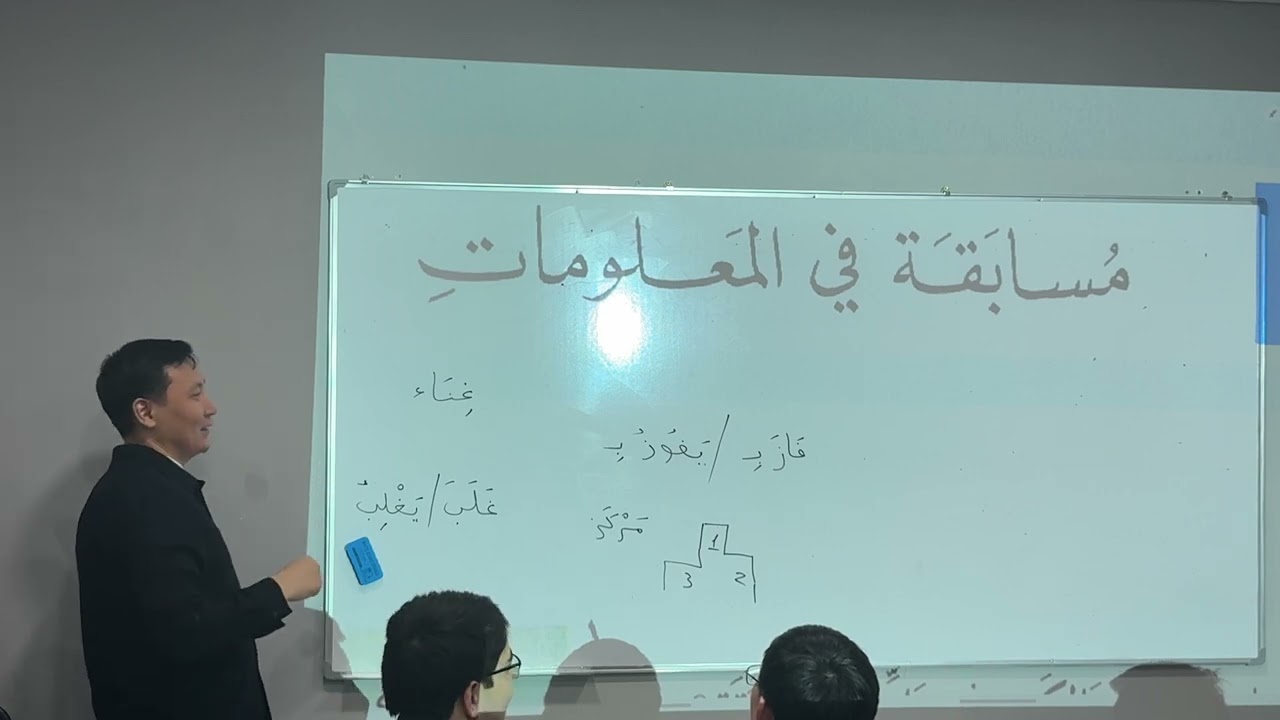 مُسابَقَة في المَعلوماتِ
غِنَاء
فَازَ بِـ / يَفُوْزُ بِـ
غَلَبَ / يَغْلِبُ
مَرْكَز
1
3 2